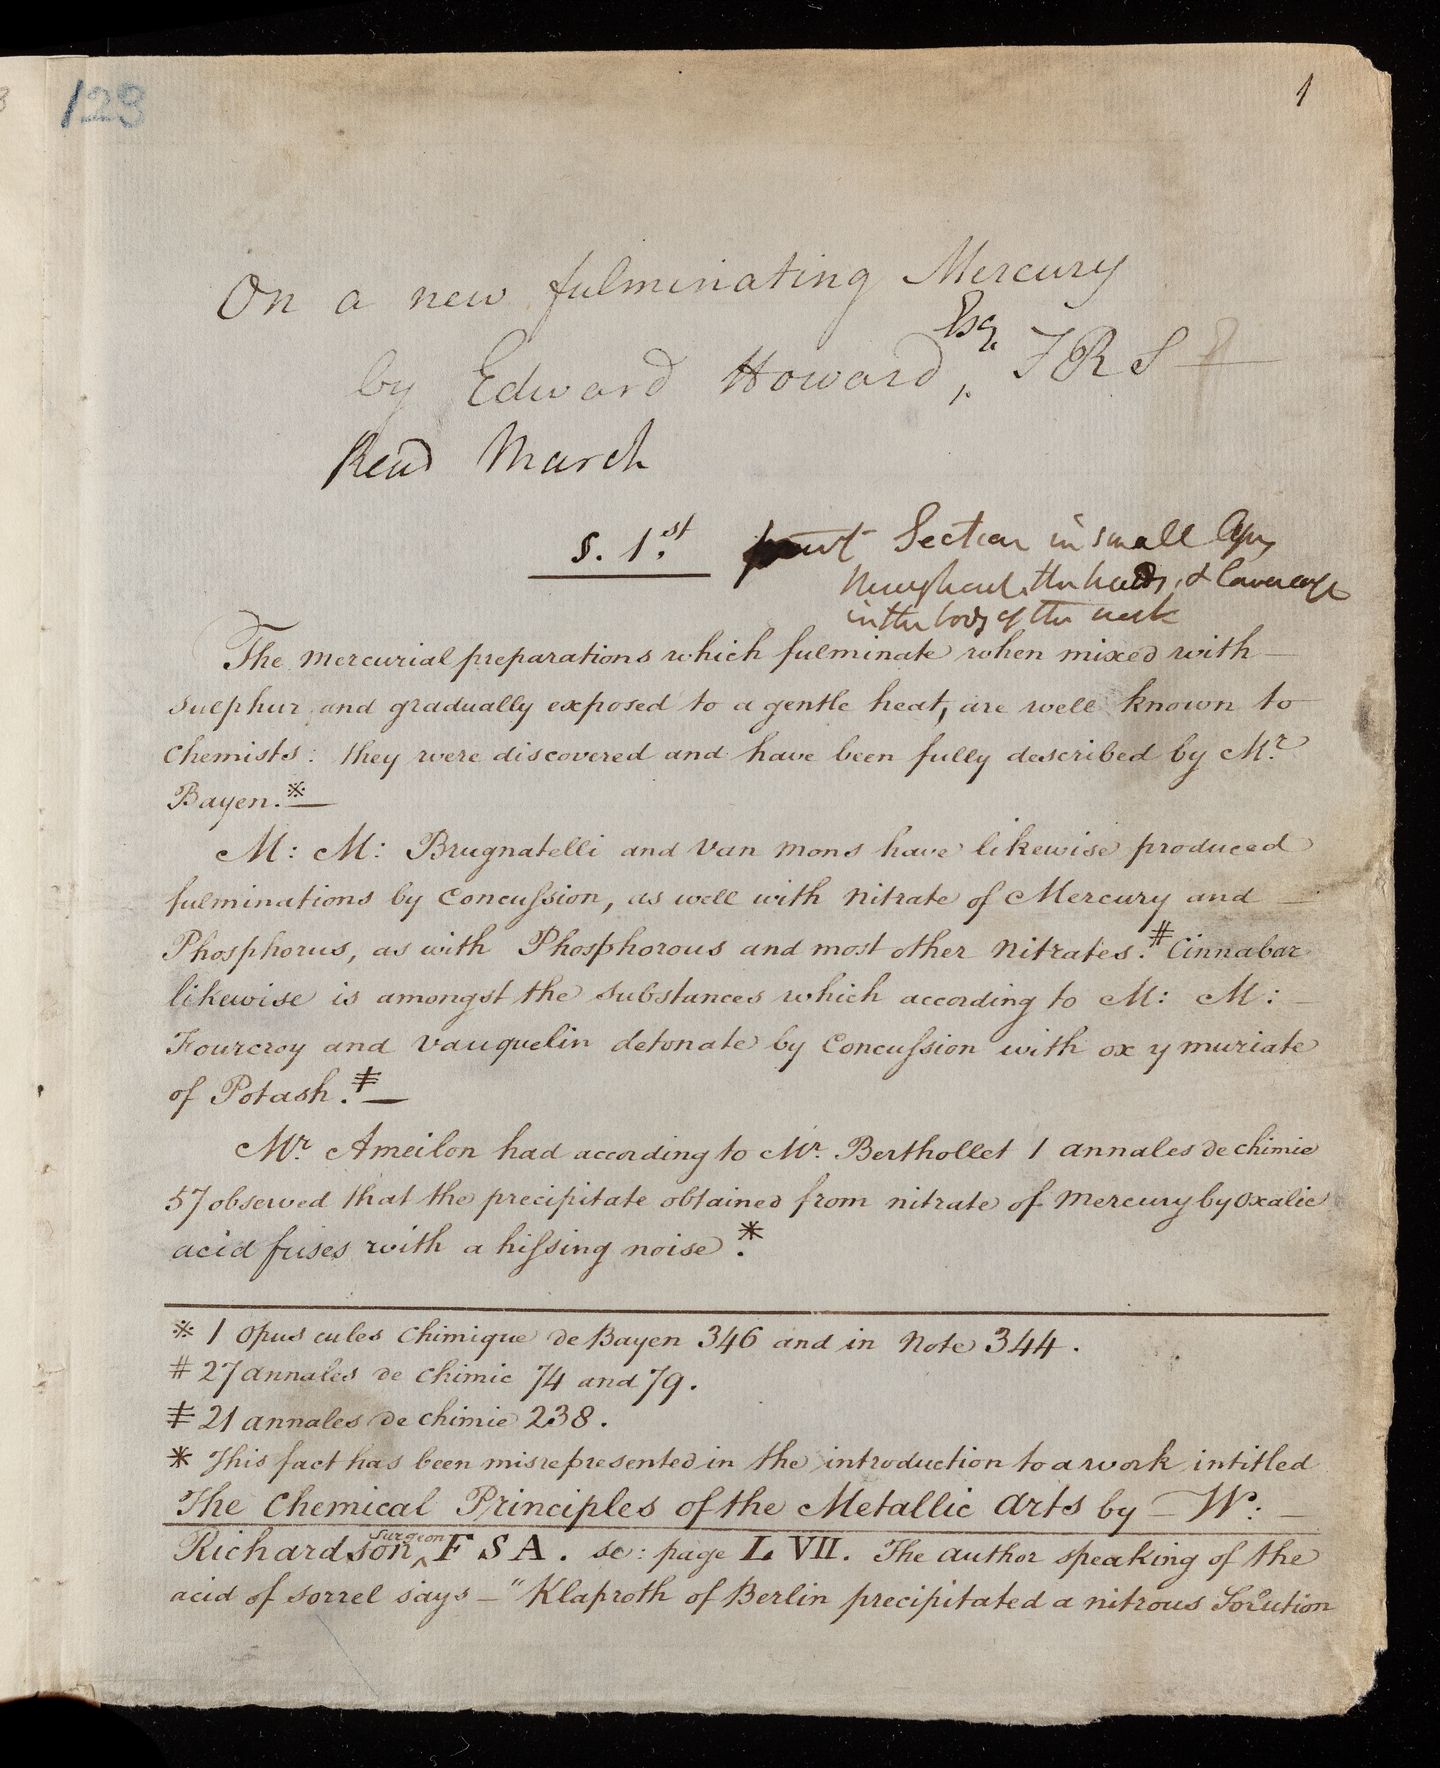 128
1
On a new fulminating Mercury
by Edward Howard, Esq. F R S
Read March
S. 1.st
print Section in small
throughout the heads, &
in the body of the work
The mercurial preparations which fulminate when mixed with
sulphur and gradually exposed to a gentle heat, are well known to
Chemists: they were discovered and have been fully described by Mr.
Bayen.※—
M: M: Brugnatelli and Van Mons have likewise produced
fulminations by Concuſsion, as well with Nitrate of Mercury and —
Phosphorus, as with Phosphorous and most other Nitrates.# Cinnabar
likewise is amongst the substances which according to M: M: —
Fourcroy and Vauquelin detonate by Concuſsion with oxy muriate
of Potash.ǂ—
Mr. Ameilon had according to Mr. Berthollet 1 annales de chimie
57 observed that the precipitate obtained from nitrate of Mercury by Oxalic
acid fuses with a hiſsing noise.*
※ 1 Opuscules Chimique de Bayen 346 and in Note 344.
# 27 annales de Chimie 74 and 79.
ǂ 21 annales de chimie 238.
* This fact has been misrepresented in the introduction to a work intitled
The Chemical Principles of the Metallic Arts by — W: —
Richardson, Surgeon F S A. se: page L VII. The author speaking of the
acid of sorrel says — "Klaproth of Berlin precipitated a nitrous Solution